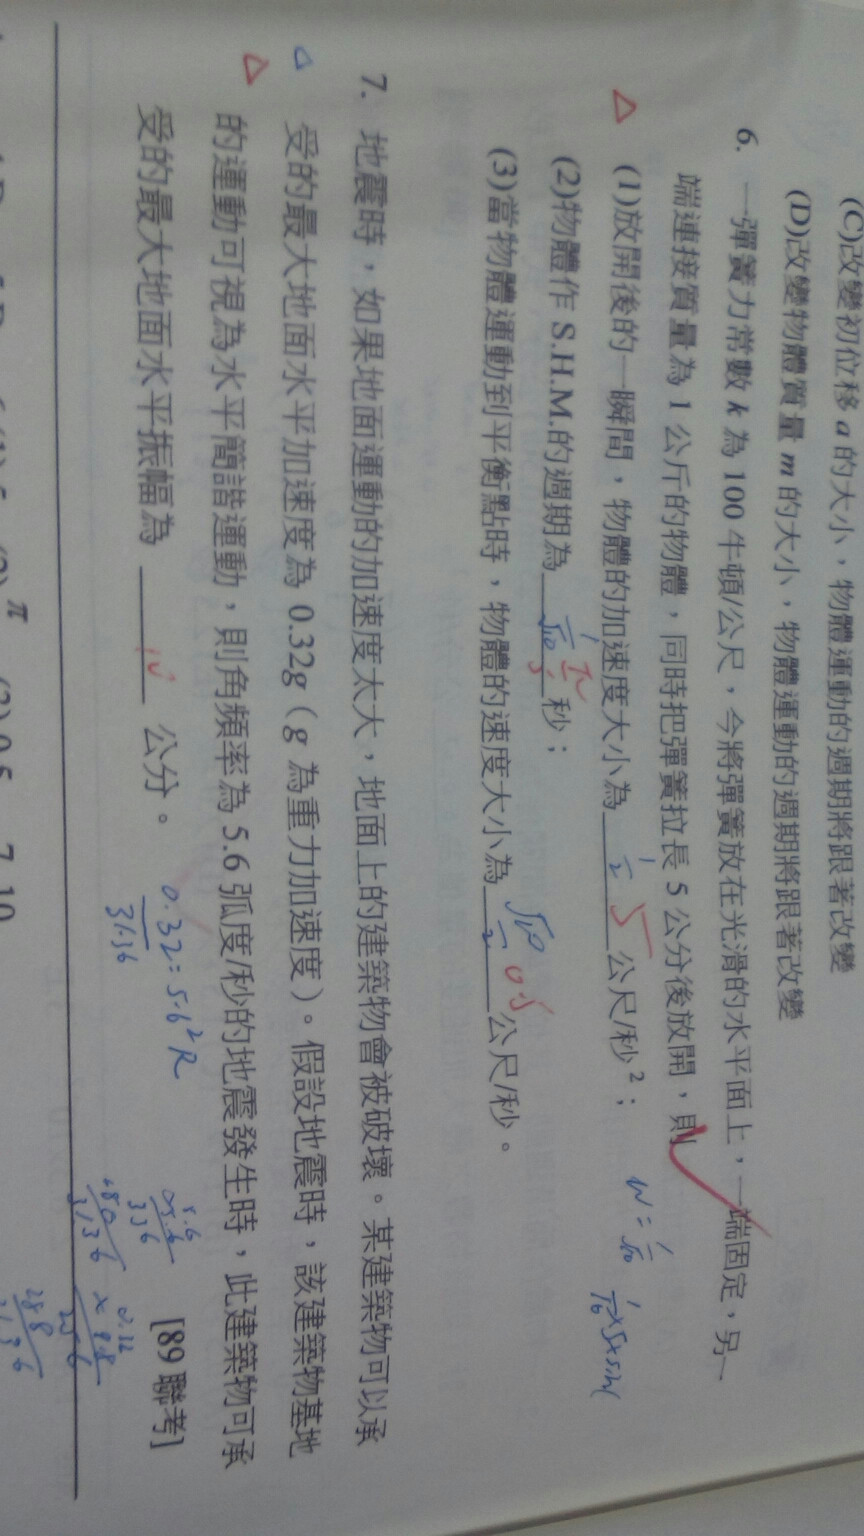 (C)改變初位移 a 的大小,物體運動的週期將跟著改變
(D)改變物體質量 m 的大小,物體運動的週期將跟著改變
6. 一彈簧力常數 k 為 100 牛頓/公尺,今將彈簧放在光滑的水平面上,一端固定,另一
端連接質量為 1 公斤的物體,同時把彈簧拉長 5 公分後放開,則
(1)放開後的一瞬間,物體的加速度大小為 1/2 5 公尺/秒²;
(2)物體作 S.H.M.的週期為 1/√10 π/5 秒;
(3)當物體運動到平衡點時,物體的速度大小為 √10/2 0.5 公尺/秒。
W = 1/√10
7. 地震時,如果地面運動的加速度太大,地面上的建築物會被破壞。某建築物可以承
受的最大地面水平加速度為 0.32g(g 為重力加速度)。假設地震時,該建築物基地
的運動可視為水平簡諧運動,則角頻率為 5.6 弧度/秒的地震發生時,此建築物可承
受的最大地面水平振幅為 10 公分。
[89 聯考]
0.32=5.6²R
31.36
5.6
336
280
3136
0.32
x 9.8
256
288
3136
π
(3) 0.5
7.10